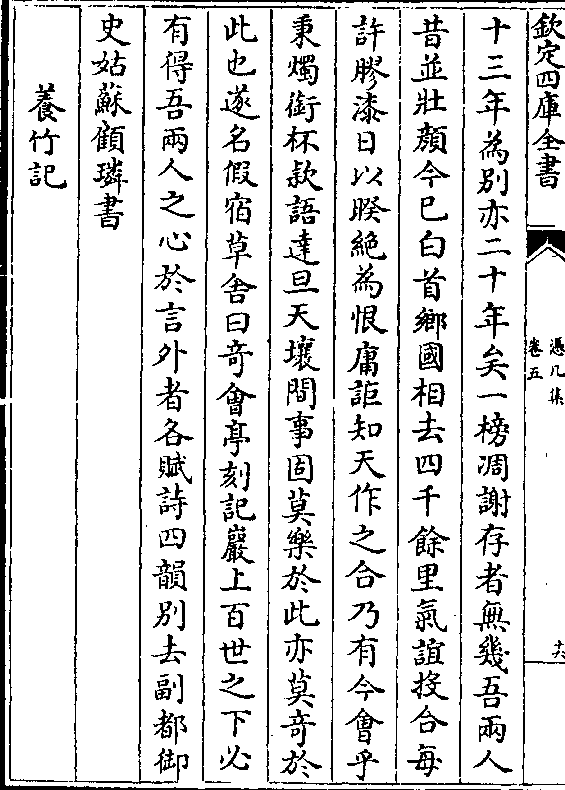 欽定四庫全書
憑几集
卷五
十六
十三年為別亦二十年矣一榜凋謝存者無幾吾兩人
昔並壯顔今已白首鄉國相去四千餘里氣誼投合每
許膠漆日以暌絶為恨庸詎知天作之合乃有今會乎
秉燭銜杯款語達旦天壤間事固莫樂於此亦莫竒於
此也遂名假宿草舍曰竒會亭刻記巖上百世之下必
有得吾兩人之心於言外者各賦詩四韻别去副都御
史姑蘇顧璘書
養竹記